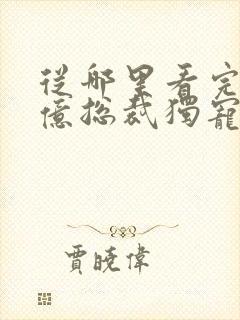 從哪里看完
億總裁獨寵
賈曉偉